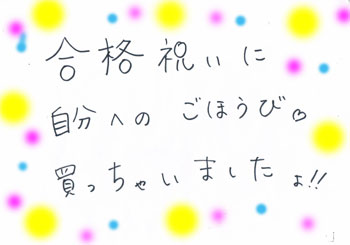 合格祝いに
自分への ごほうび。
買っちゃいましたょ!!